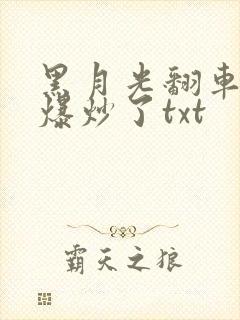 黑月光翻车
爆炒了txt
霸天之狼